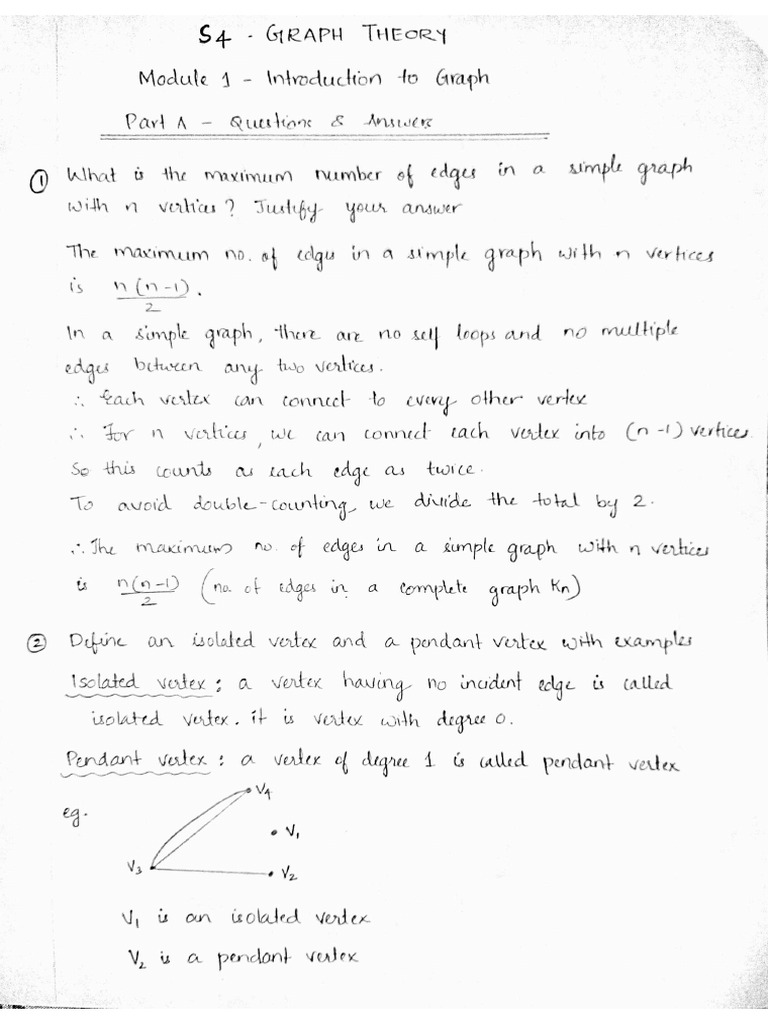 S4 - GRAPH THEORY
Module 1 - Introduction to Graph
Part A - Questions & Answers
① What is the maximum number of edges in a simple graph
with n vertices? Justify your answer
The maximum no. of edges in a simple graph with n vertices
is n(n-1)/2.
In a simple graph, there are no self loops and no multiple
edges between any two vertices.
∴ Each vertex can connect to every other vertex
∴ For n vertices, we can connect each vertex into (n-1) vertices.
So this counts as each edge as twice.
To avoid double-counting, we divide the total by 2.
∴ The maximum no. of edges in a simple graph with n vertices
is n(n-1)/2 (no. of edges in a complete graph Kn)
② Define an isolated vertex and a pendant vertex with examples
Isolated vertex: a vertex having no incident edge is called
isolated vertex. it is vertex with degree 0.
Pendant vertex: a vertex of degree 1 is called pendant vertex
eg.
V4
V1
V3
V2
V1 is an isolated vertex
V2 is a pendant vertex